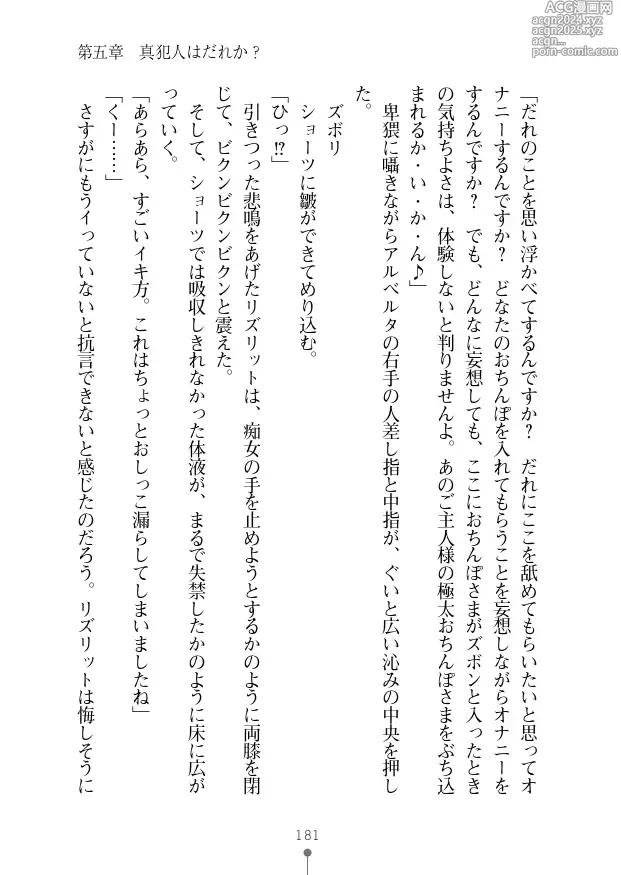 第五章　真犯人はだれか？
ACG漫画网
acgn2024.xyz
acgn2025.xyz
porn-comic.com
「だれのことを思い浮かべてするんですか？　だれにここを舐めてもらいたいと思ってオ
ナニーするんですか？　どなたのおちんぽを入れてもらうことを妄想しながらオナニーを
するんですか？　でも、どんなに妄想しても、ここにおちんぽさまがズボンと入ったとき
の気持ちよさは、体験しないと判りませんよ。あのご主人様の極太おちんぽさまをぶち込
まれるか・い・か・ん♪」
　卑猥に囁きながらアルベルタの右手の人差し指と中指が、ぐいと広い沁みの中央を押し
た。
　ズボリ
　ショーツに皺ができてめり込む。
「ひっ!?」
　引きつった悲鳴をあげたリズリットは、痴女の手を止めようとするかのように両膝を閉
じて、ビクンビクンと震えた。
　そして、ショーツでは吸収しきれなかった体液が、まるで失禁したかのように床に広が
っていく。
「あらあら、すごいイキ方。これはちょっとおしっこ漏らしてしまいましたね」
「くー……」
　さすがにもうイっていないと抗言できないと感じたのだろう。リズリットは悔しそうに
181